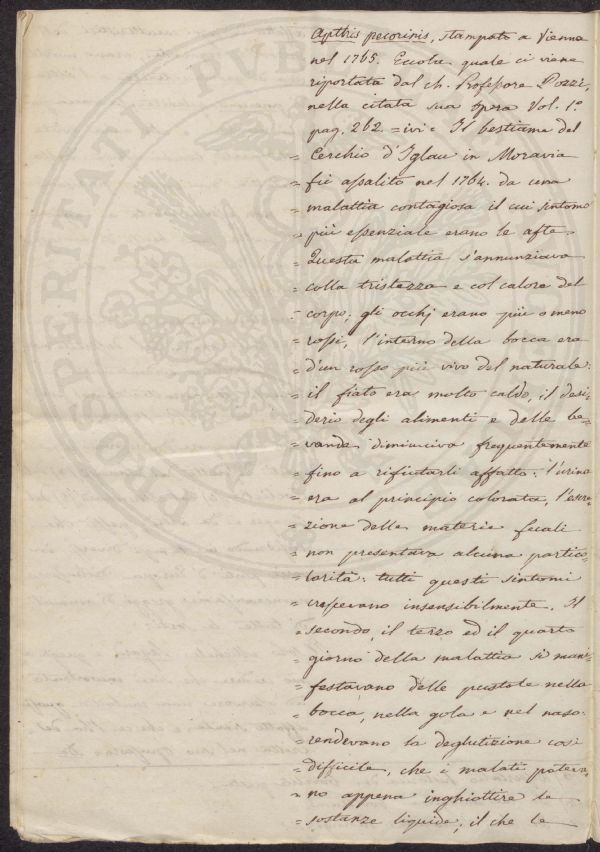 Apthis pecorinis, stampato a Vienna
nel 1765. Eccolo quale ci viene
riportata dal ch. Professore Pozzi,
nella citata sua opera Vol. 1°
pag. 262. = ivi = Il bestiame del
= Cerchio d'Iglau in Moravia
= fù assalito nel 1764. da una
= malattia contagiosa il cui sintomo
= più essenziale erano le afte.
= Questa malattia s'annunziava
= colla tristezza e col calore del
= corpo; gli occhj erano più o meno
= rossi, l'interno della bocca era
= d'un rosso più vivo del naturale:
= il fiato era molto caldo, il desi-
= derio degli alimenti e delle be-
= vande diminuiva frequentemente
= fino a rifiutarli affatto: l'urina
= era al principio colorata, l'escre-
= zione delle materie fecali
= non presentava alcuna partico-
= larità: tutti questi sintomi
= crescevano insensibilmente. Il
= secondo, il terzo ed il quarto
= giorno della malattia si mani-
= festavano delle pustole nella
= bocca, nella gola e nel naso:
= rendevano la deglutizione così
= difficile, che i malati poteva-
= no appena inghiottire le
= sostanze liquide; il che le
PUB